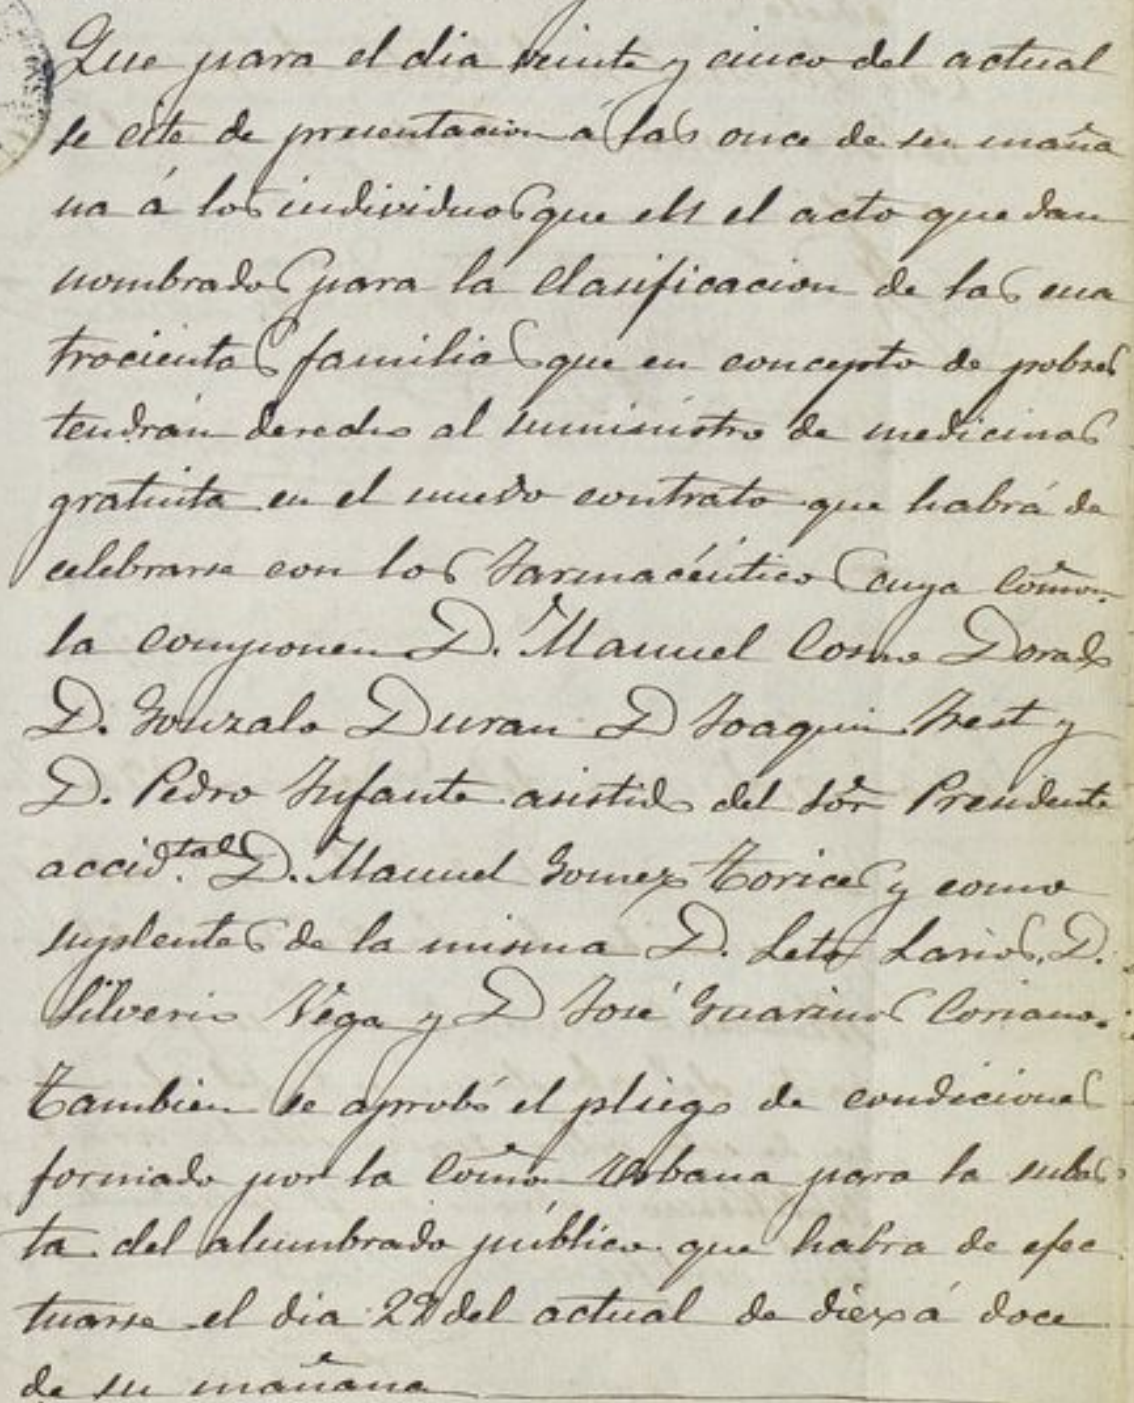 Que para el dia veinte y cinco del actual
se cite de presentacion á las once de su maña
na á los individuos que en el acto quedan
nombrados para la Clasificacion de las cua
trocientas familias que en concepto de pobres
tendrán derecho al suministro de medicinas
gratuita en el nuevo contrato que habrá de
celebrarse con los Farmacéuticos cuya Comon.
la componen D. Manuel Cosme Dorado
D. Gonzalo Duran D Joaquin Trest y
D. Pedro Infante asistido del Sor Presidente
accid.tal D. Manuel Gomez Torices y como
suplentes de la misma D. Leto Larios, D.
Silverio Vega y D José Guarinos Coriano.
Tambien se aprobó el pliego de condiciones
formado por la Comon Urbana para la subas
ta del alumbrado público que habra de efec
tuarse el dia 29 del actual de diez á doce
de su mañana